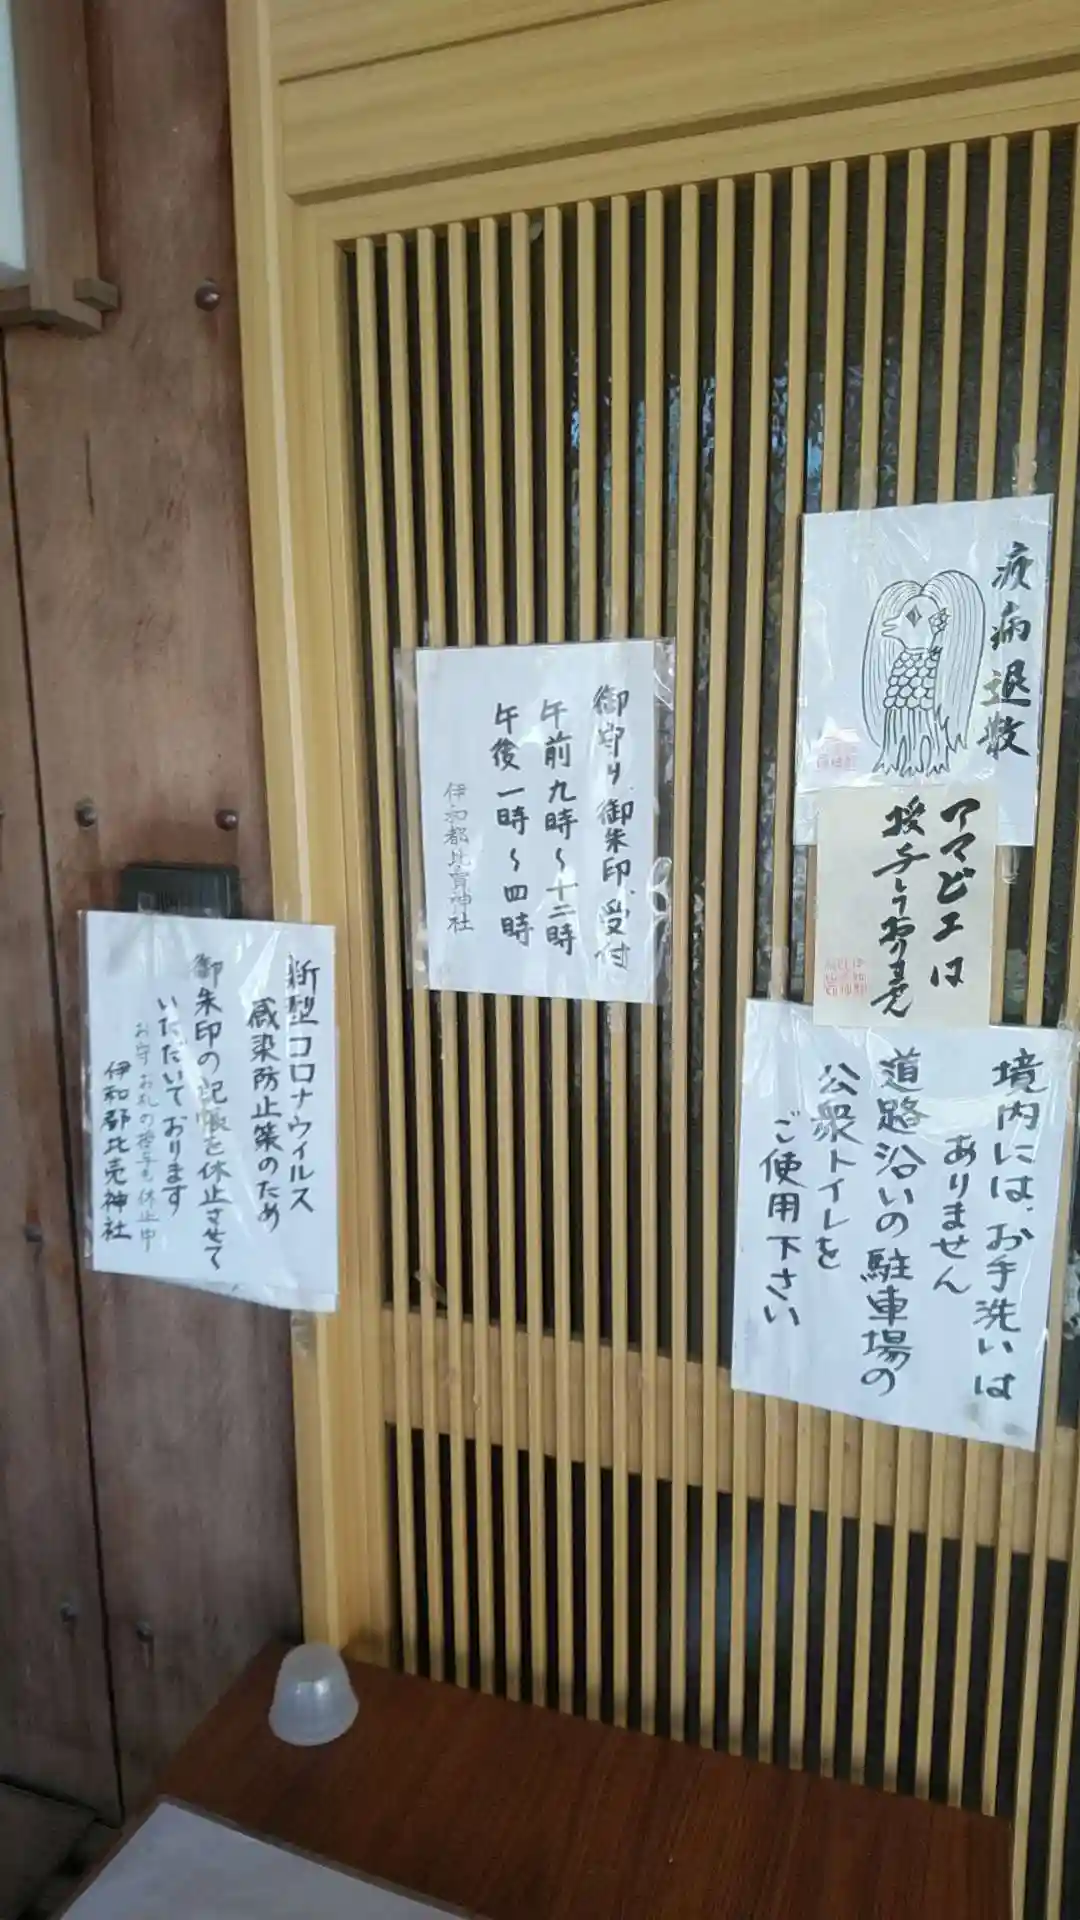 疫病退散
アマビエは
授与しております
御守り、御朱印、受付
午前九時〜十二時
午後一時〜四時
伊和都比賣神社
境内には、お手洗いは
ありません
道路沿いの駐車場の
公衆トイレを
ご使用下さい
新型コロナウイルス
感染防止策のため
御朱印の記帳を休止させて
いただいております
お守お札の授与も休止中
伊和都比売神社